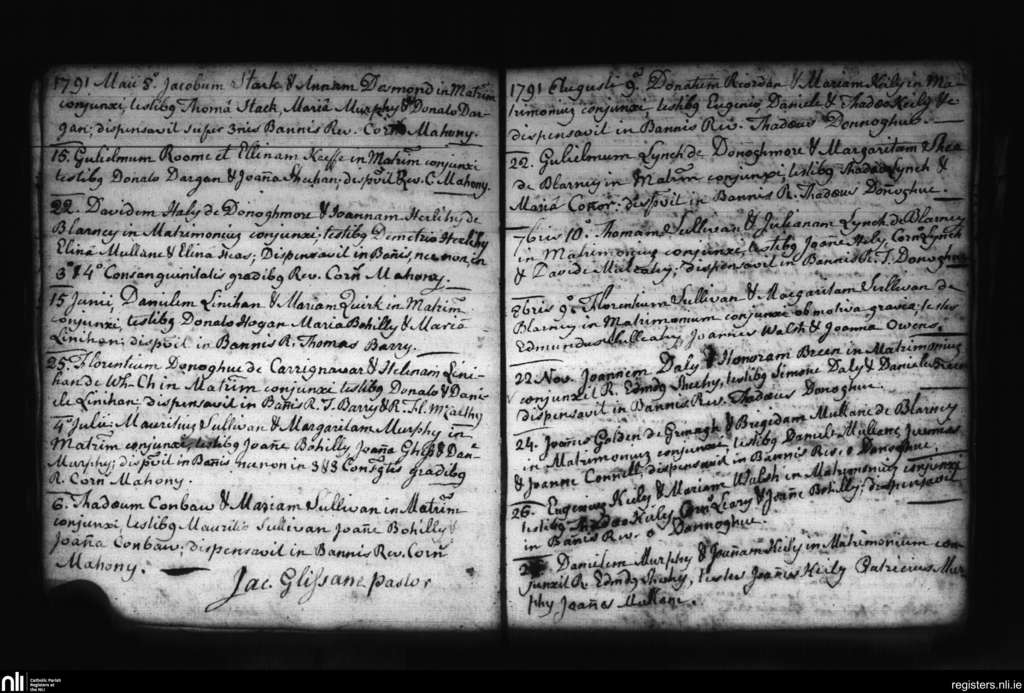 1791 Maii 8º. Jacobum Stack & Annam Desmond in Matrim
conjunxi, testibq Thomâ Stack, Mariâ Murphy & Donato Dar-
gan; dispensavit super 3nis Bannis Rev. Cornˢ Mahony.
15. Gulielmum Roome et Ellinam Keeffe in Matrim conjunxi
testibq Donato Dargan & Joaña Sheehan; dispvit Rev. C. Mahony.
22. Davidem Haly de Donoghmore & Joannam Herlihy de
Blarney in Matrimoniuȝ conjunxi; testibq Demetrio Herlihy
Elinâ Mullane & Elina Heas; Dispensavit in Banis, nec non, in
3º & 4º Consanguinitatis gradibq Rev. Corñ Mahony.
15 Junii, Danielem Linihan & Mariam Quirk in Matrim
conjunxi, testibq Donato Hogan Maria Bohilly & Mariâ
Linihan; dispvit in Bannis R. Thomas Barry.
25. Florentium Donoghue de Carrignavar & Helenam Lini-
han de Wh-Ch in Matrim conjunxi testibq Donato & Dani-
ele Linihan: dispensavit in Bañis R. T. Barry & R. Fl. McCarthy
4º Julii Mauritiuȝ Sullivan & Margaritam Murphy in
Matrim conjunxi, testibq Joañe Bohilly Joaña & Dane
Murphy; dispvit in Banis necnon in 3 & 3 Consgtis gradibq
R. Corñ Mahony.
6. Thadoeum Conbaw & Mariam Sullivan in Matrim
conjunxi, testibq Mauritio Sullivan Joañe Bohilly &
Joaña Conbaw. dispensavit in Bannis Rev. Corñ
Mahony.
Jac. Glissane Pastor
1791 Augusti 9. Donatum Riordan & Mariam Kiily in Ma-
trimoniuȝ conjunxi, testibq Eugenio, Daniele & Thadœo Keily &c
dispensavit in Bannis Rev. Thadœus Donnoghue.
22. Gulielmum Lynch de Donoghmore & Margaritam Shea
de Blarney in Matrim conjunxi, testibq Thadœo Lynch &
Mariâ Coñor: dispvit in Bannis R. Thadœus Doñoghue.
7bris 10. Thomam Sullivan & Julianam Lynch de Blarney
in Matrimoniuȝ conjunxi, testibq Joañe Haly, Cornº Lynch
& Davide Mulcahy: dispensavit in Bannis R. T. Donoghue
8bris 9º. Florentium Sullivan & Margaritam Sullivan de
Blarney in Matrimonium conjunxi ob motiva gravia; testes
Edmundus Mulleahy, Joannis Walsh & Joanna Owens.
22 Nov. Joannem Daly & Honoram Breen in Matrimoniuȝ
conjunxit R. Edmdȝ Sheehy, testibq Simone Daly & Daniele Breen
dispensavit in Bannis Rev. Thadœus Donoghue.
24. Joañes Golden de Grenagh & Brigidam Mullane de Blarney
in Matrimoniuȝ conjunxi testibq Daniele Mullane, Jeremia
& Joanne Connell dispensavit in Bannis Rev. o Donoghue.
26. Eugeniuȝ Kiily & Mariam Walsh in Matrimoniuȝ conjunxi
testibq Thadœo Kiily Cornº Leary & Joañe Bohilly; dispensavit
in Banis Rev. o Donnoghue.
Danielem Murphy & Joañam Kiily in Matrimonium con
junxit R. Edmdȝ Sheehy, testes Joañes Kiily Patricius Mur
phy Joañes Mullane.
nli
Catholic Parish
Registers at
the NLI
registers.nli.ie